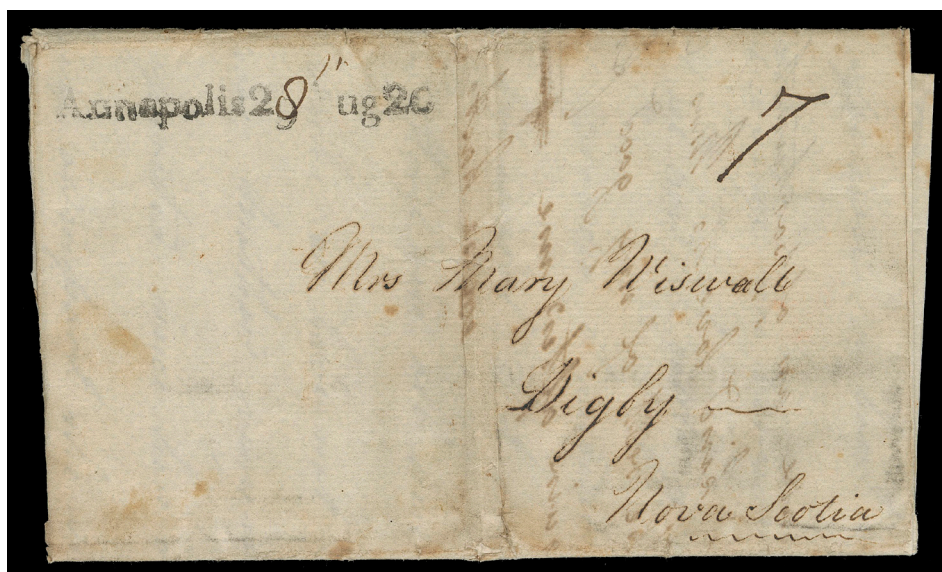 Annapolis 28 ug 20
7
Mrs Mary Wiswall
Digby
Nova Scotia